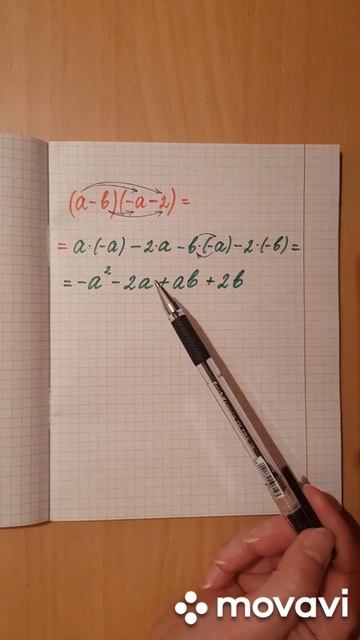 (a-b)(-a-2)=
= a·(-a) - 2·a - b·(-a) - 2·(-b) =
= -a² - 2a + ab + 2b
movavi